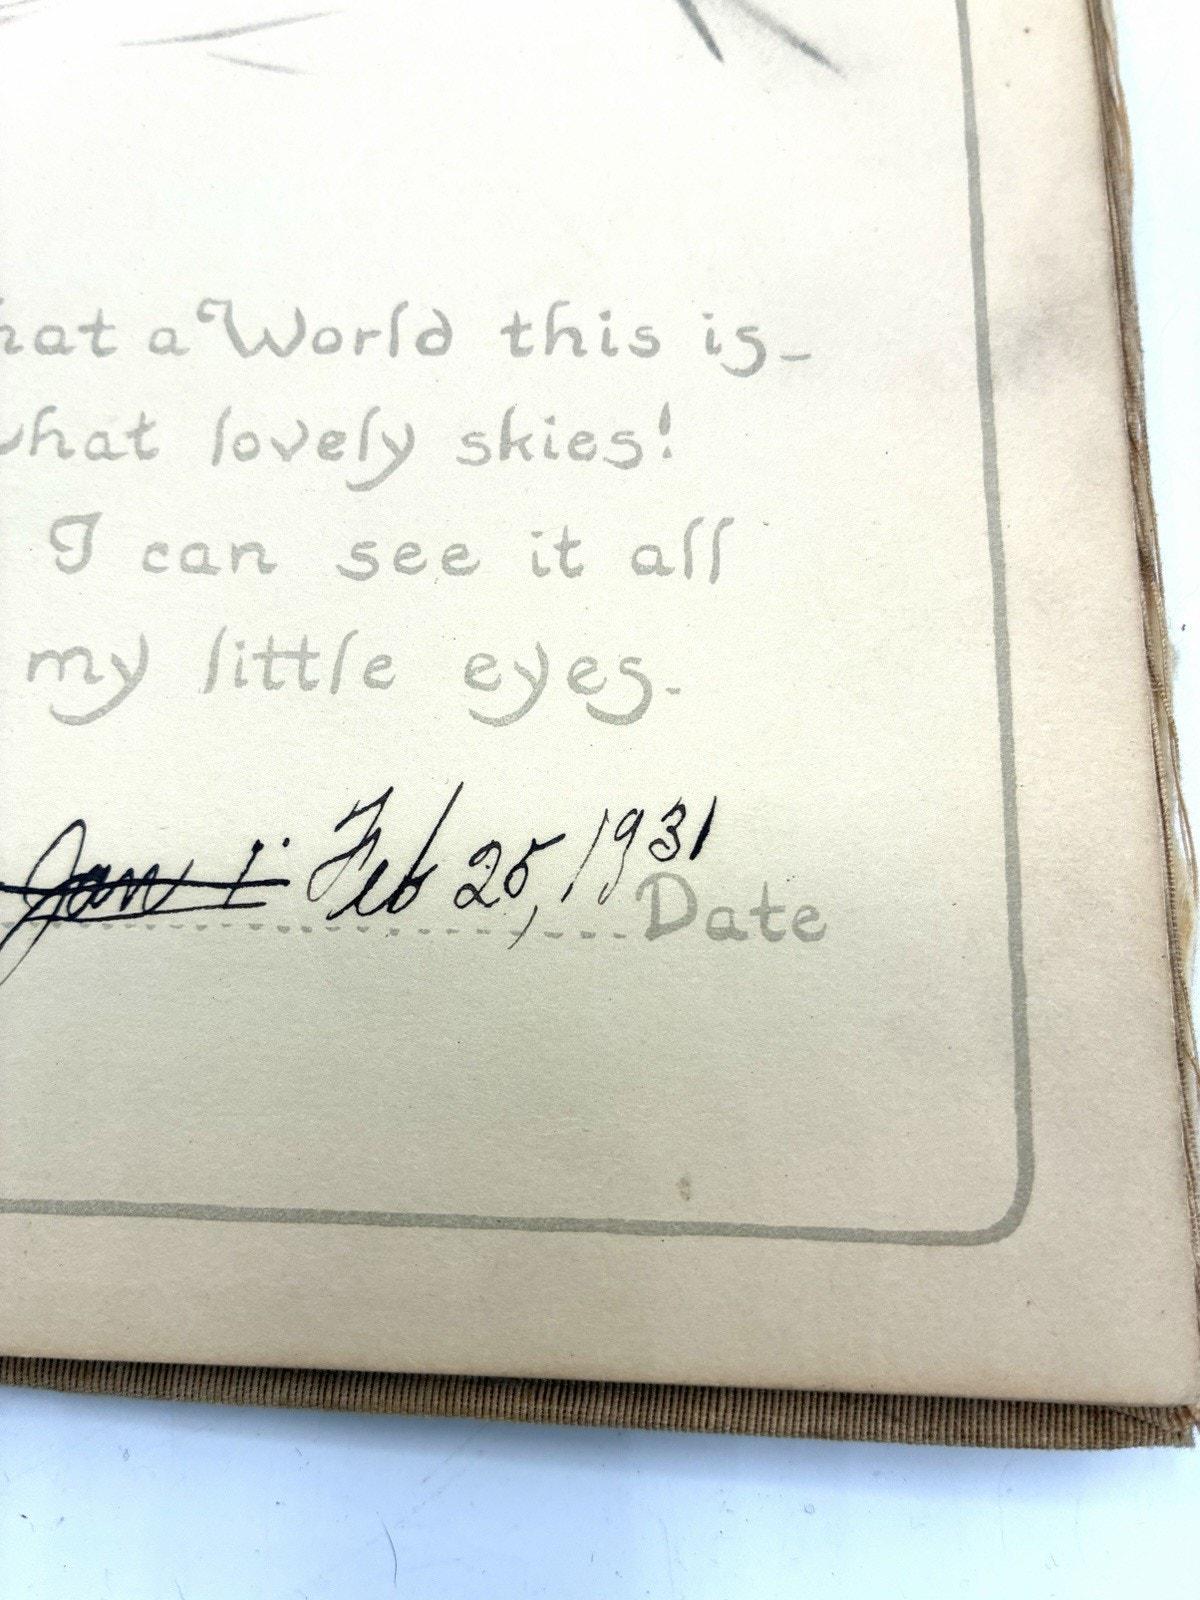 hat a World this is-
what lovely skies!
I can see it all
my little eyes.
Jan 1. Feb 25, 1931
Date